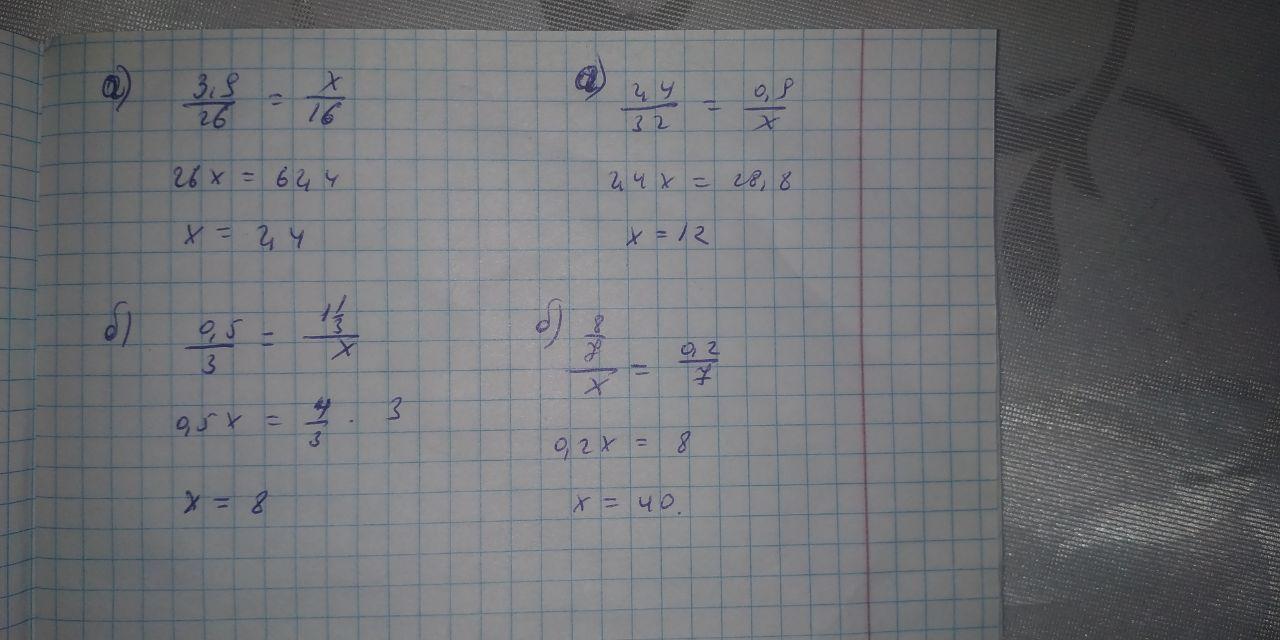 а) 3,9/26 = x/16
26x = 62,4
x = 2,4
б) 0,5/3 = 1 1/3/x
0,5x = 4/3 · 3
x = 8
а) 2,4/32 = 0,9/x
2,4x = 28,8
x = 12
б) 8/7/x = 0,2/7
0,2x = 8
x = 40.